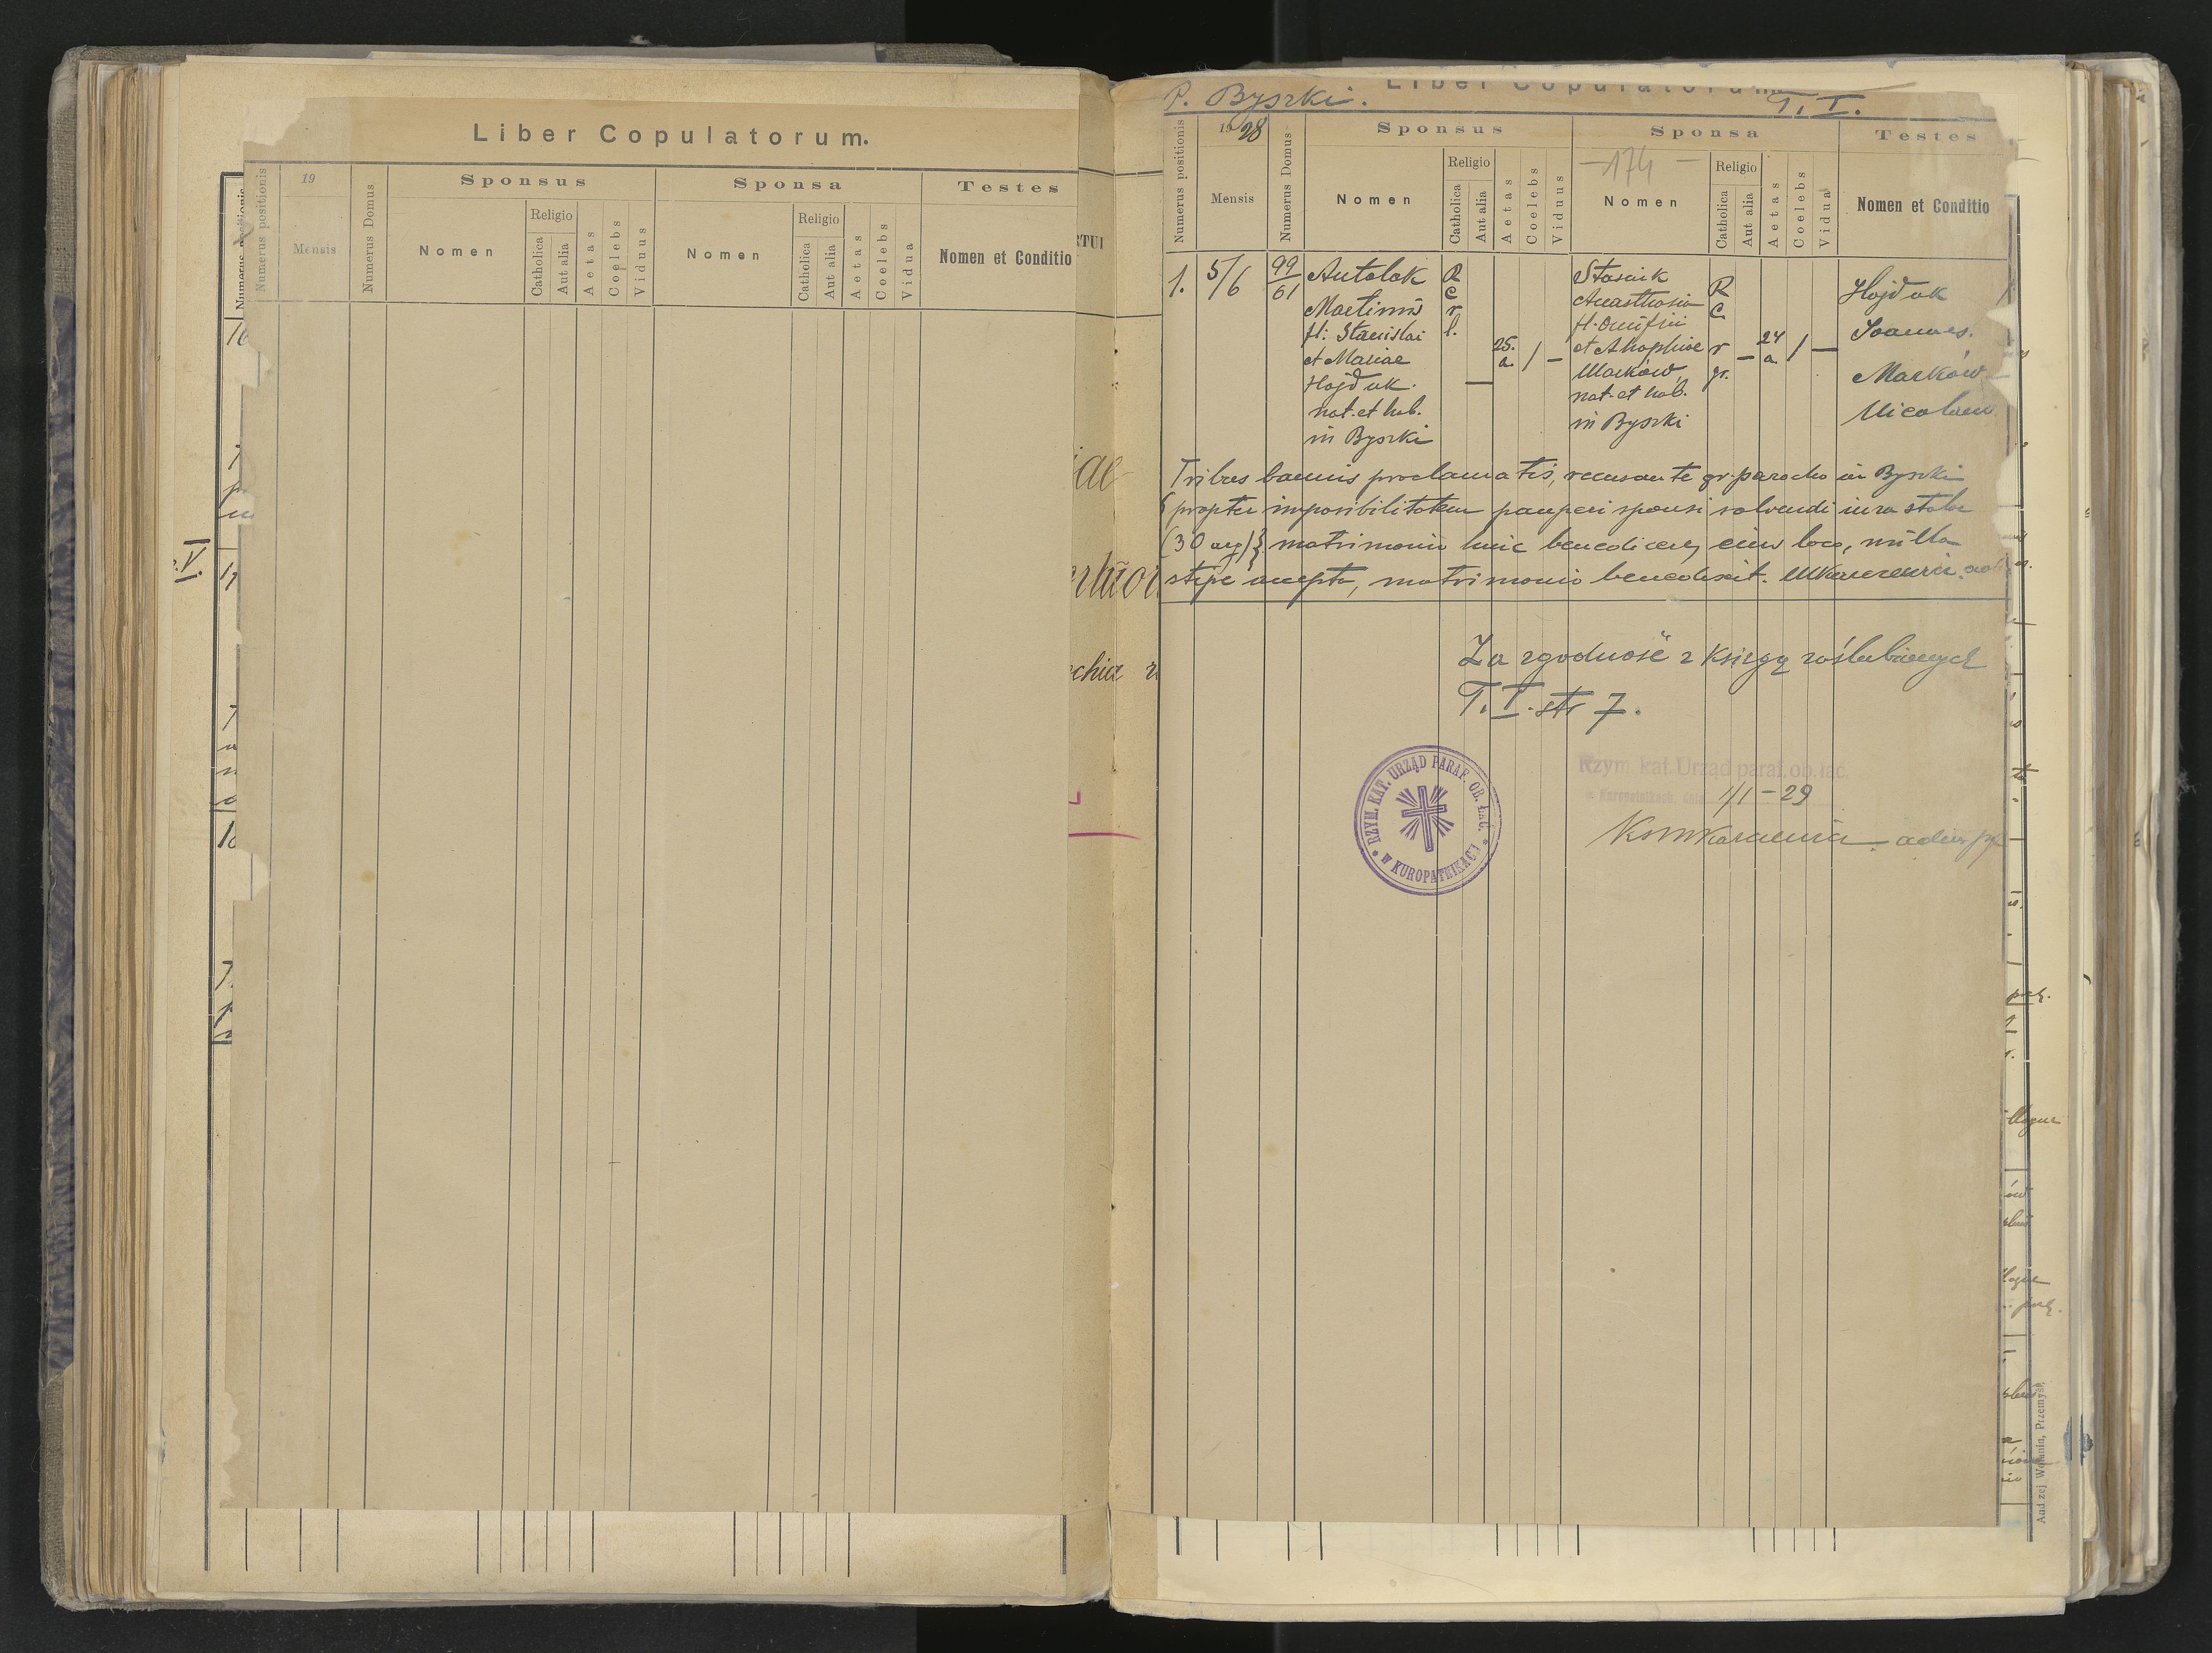 Liber Copulatorum.
Numerus positionis
19
Mensis
Numerus Domus
Sponsus
Nomen
Religio
Catholica
Aut alia
Aetas
Coelebs
Viduus
Sponsa
Nomen
Religio
Catholica
Aut alia
Aetas
Coelebs
Vidua
Testes
Nomen et Conditio
P. Byszki.
Liber Copulatorum
T. I.
Numerus positionis
1928
Mensis
Numerus Domus
Sponsus
Nomen
Religio
Catholica
Aut alia
Aetas
Coelebs
Viduus
Sponsa
- 174 -
Nomen
Religio
Catholica
Aut alia
Aetas
Coelebs
Vidua
Testes
Nomen et Conditio
1.
5/6
99
61
Antolak
Martinus
fil: Stanislai
et Mariae
Hojduk.
nat. et hab.
in Byszki
R
C
r
l.
—
25.
a.
/
—
Stasiuk
Anasthasia
et
Marków
nat. et hab.
in Byszki
R
C
r
gr.
—
24
a.
/
—
Hojduk
Joannes.
Marków
Nicolaus
Tribus bannis proclamatis, recusante gr. parocho in Byszki
(propter impossibilitatem pauperi sponsi solvendi iura stolae
(30 matrimonio huic benedicere, eius loco, nulla
stipe accepta, matrimonio benedixit.
Za zgodność z Księgą zaślubionych
T. I. str 7.
RZYM. KAT. URZĄD PARAF. OB. ŁAC. W KUROPATNIKACH
Rzym. kat. Urząd paraf. ob. łac.
w Kuropatnikach, dnia 1/1 - 29
Andrzej Womanin, Przemyśl.